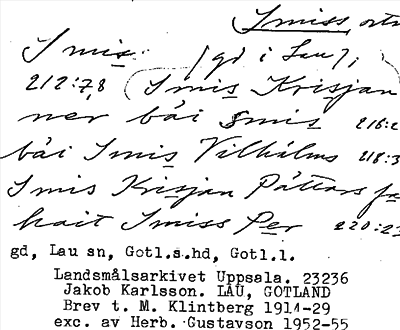 Smiss, ortn
Smis. (gd i Lau);
212:7,8 Smis Krisjan
ner båi smis 216:2
båi Smis Vilhålms 218:3
Smis Krisjan Påttars fa
hait Smiss Per 220:23
gd, Lau sn, Gotl.s.hd, Gotl.l.
Landsmålsarkivet Uppsala. 23236
Jakob Karlsson. LAU, GOTLAND
Brev t. M. Klintberg 1914-29
exc. av Herb. Gustavson 1952-55